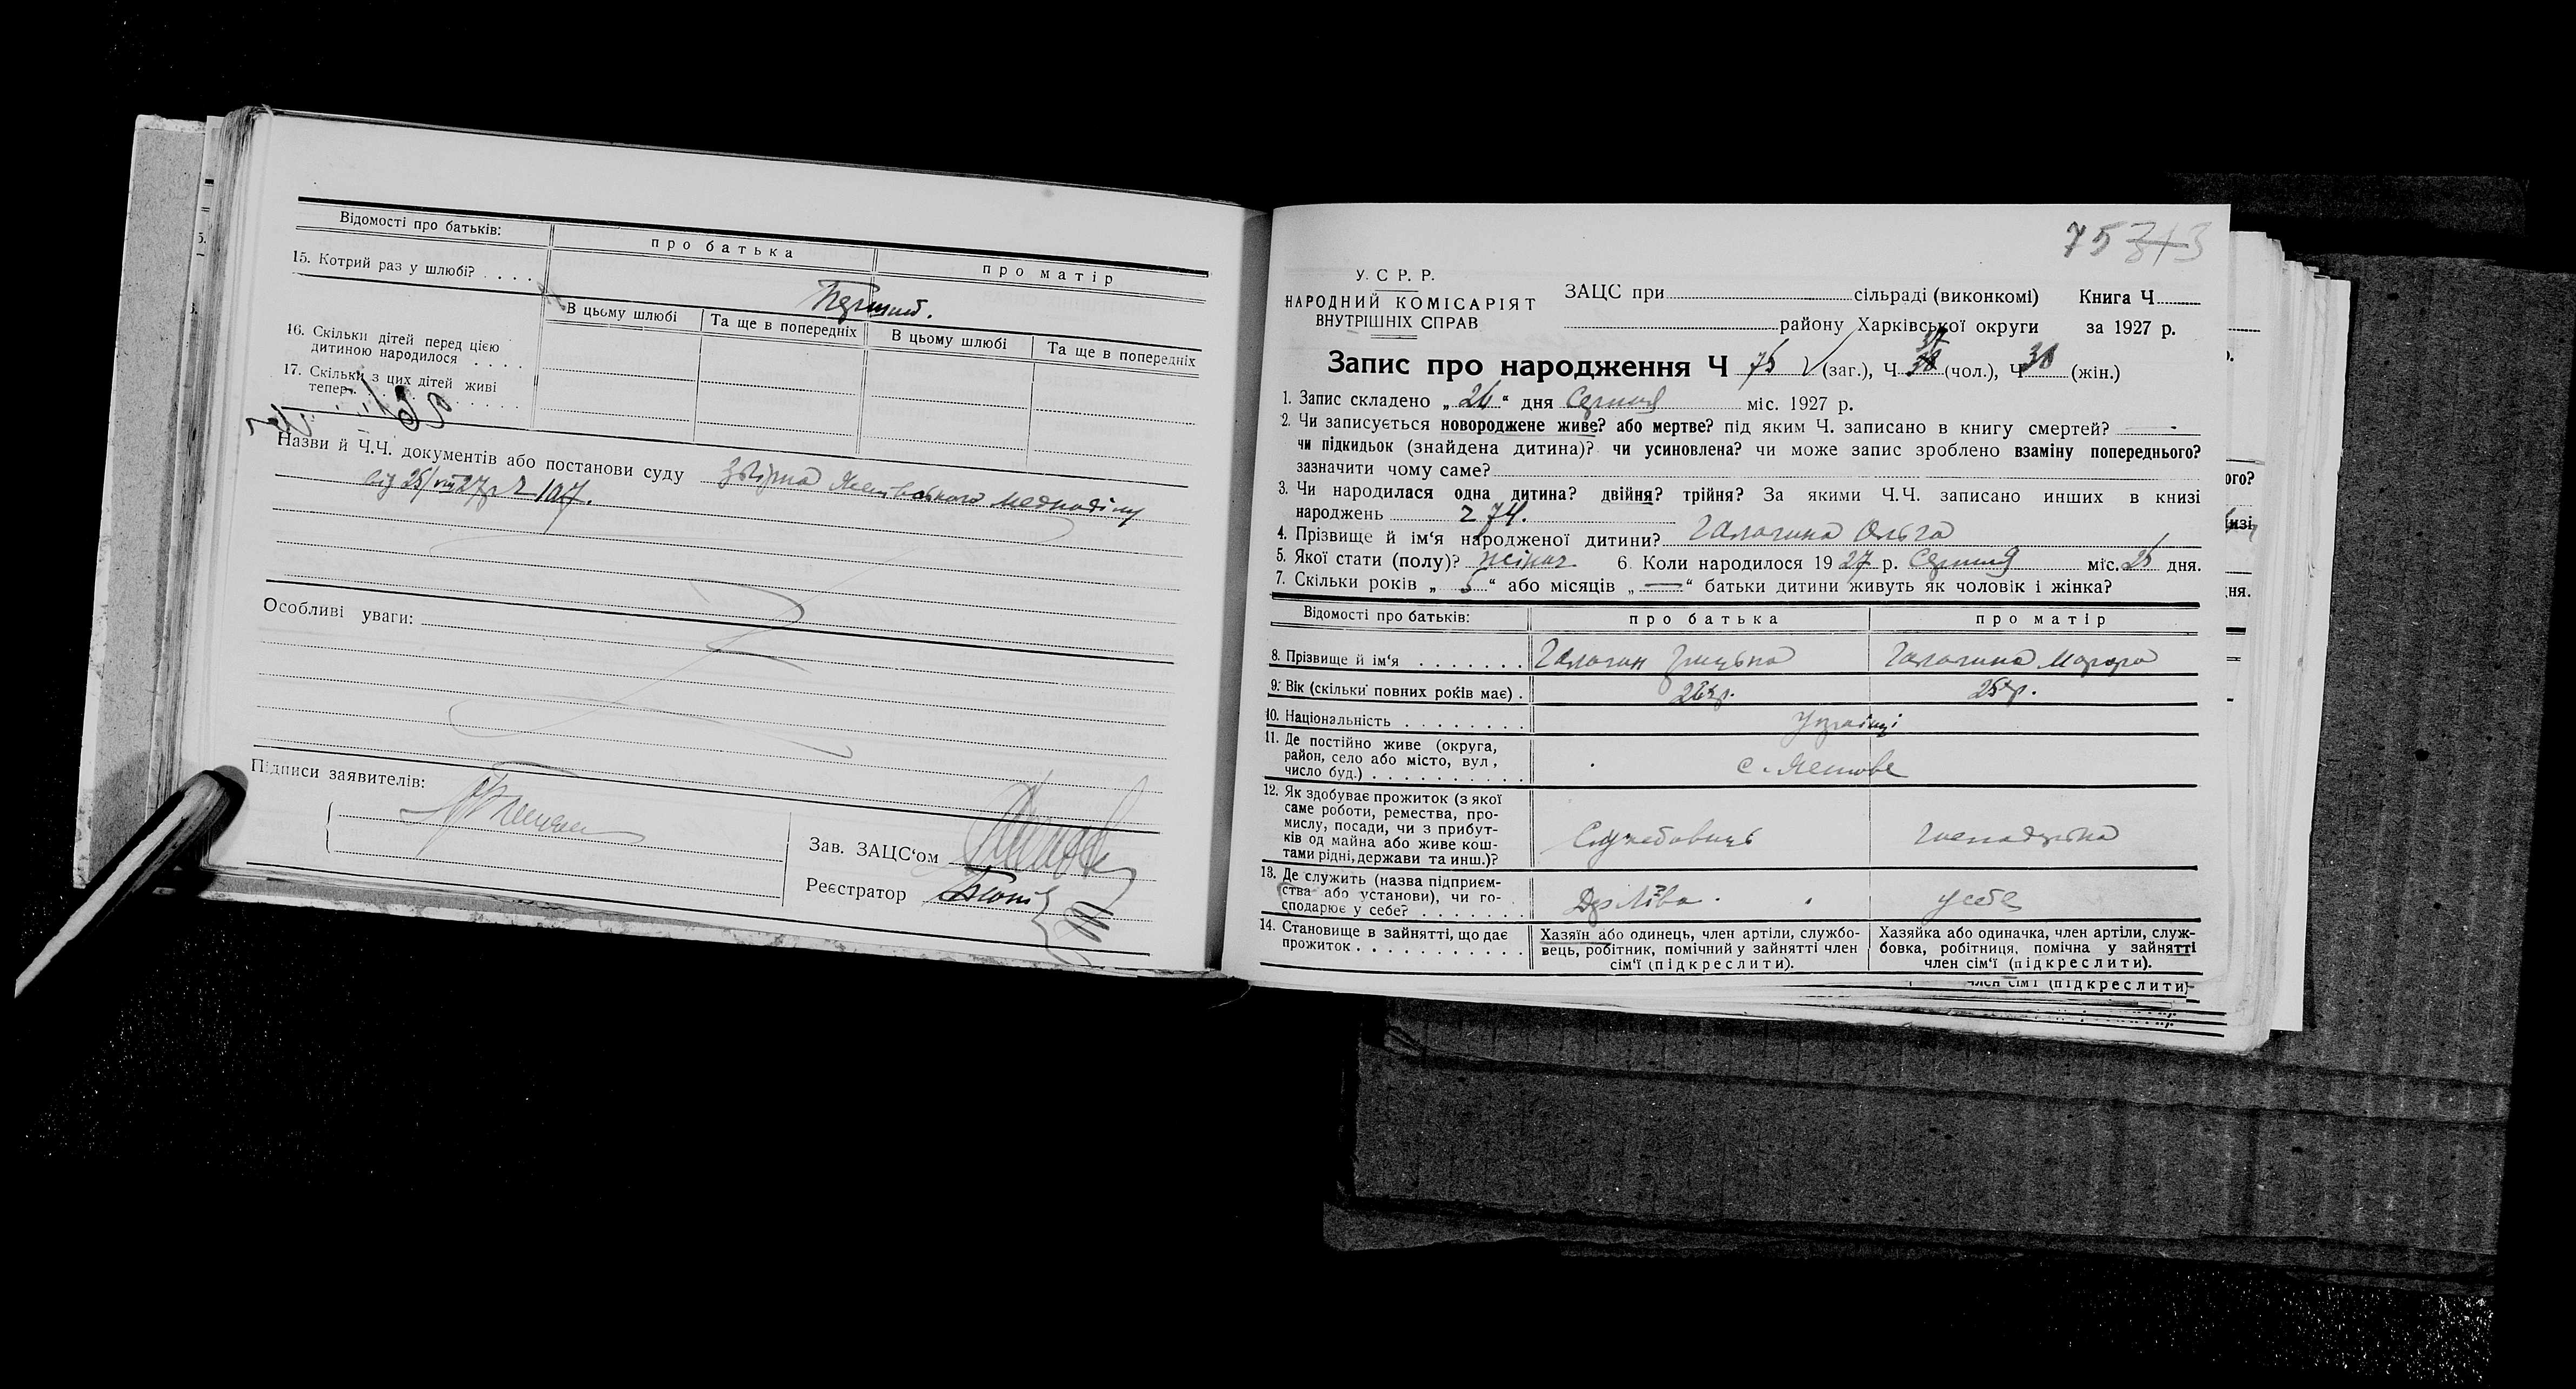 Відомості про батьків:
про батька
про матір
15. Котрий раз у шлюбі? . . . .
Перший.
В цьому шлюбі
Та ще в попередніх
В цьому шлюбі
Та ще в попередніх
16. Скільки дітей перед цією
дитиною народилося . . . .
17. Скільки з цих дітей живі
тепер
Назви й Ч.Ч. документів або постанови суду
від 25/VIII 27р
Особливі уваги:
Підписи заявителів:
Зав. ЗАЦС‘ом
Реєстратор
75
У. С Р. Р.
НАРОДНИЙ КОМІСАРІЯТ
ВНУТРІШНІХ СПРАВ
ЗАЦС при сільраді (виконкомі) Книга Ч
району Харківської округи за 1927 р.
Запис про народження Ч 75 (заг.), Ч 37 (чол.), Ч 38 (жін.)
1. Запис складено „ 26 “ дня Серпня міс. 1927 р.
2. Чи записується новороджене живе? або мертве? під яким Ч. записано в книгу смертей?
чи підкидьок (знайдена дитина)? чи усиновлена? чи може запис зроблено взаміну попереднього?
зазначити чому саме?
3. Чи народилася одна дитина? двійня? трійня? За якими Ч.Ч. записано инших в книзі
народжень 74.
4. Прізвище й ім‘я народженої дитини? Ольга
5. Якої стати (полу)? жіноч. 6. Коли народилося 1927 р. Серпня міс. 25 дня.
7. Скільки років „ 5 “ або місяців „ — “ батьки дитини живуть як чоловік і жінка?
Відомості про батьків:
про батька
про матір
8. Прізвище й ім‘я . . . . . . .
9. Вік (скільки повних років має) .
26 р.
25 р.
10. Національність . . . . . . . .
Українці
11. Де постійно живе (округа,
район, село або місто, вул,
число буд.) . . . . . . . . . .
с.
12. Як здобуває прожиток (з якої
саме роботи, ремества, про-
мислу, посади, чи з прибут-
ків од майна або живе кош-
тами рідні, держави та инш.)?
Службовець
Господарька
13. Де служить (назва підприєм-
ства або установи), чи го-
сподарює у себе? . . . . . . .
у себе
14. Становище в зайнятті, що дає
прожиток . . . . . . . . . . .
Хазяїн або одинець, член артіли, службо-
вець, робітник, помічний у зайнятті член
сім‘ї (підкреслити).
Хазяйка або одиначка, член артіли, служ-
бовка, робітниця, помічна у зайнятті
член сім‘ї (підкреслити).
член сім‘ї (підкреслити)